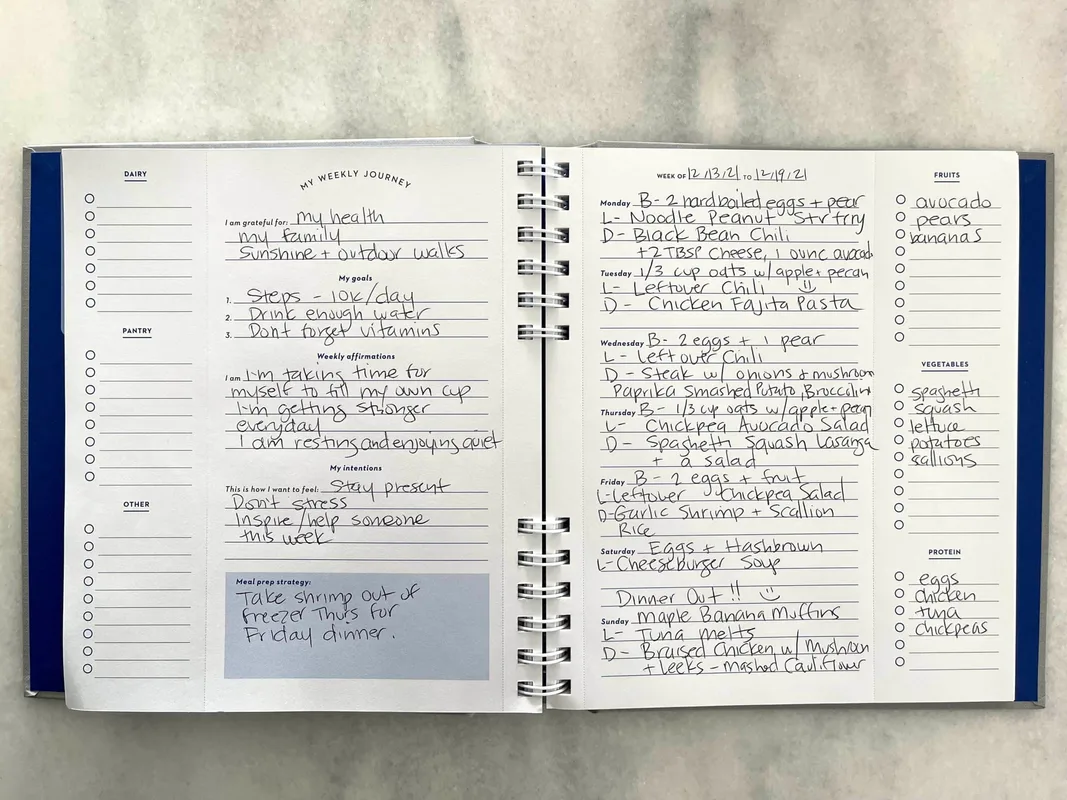 DAIRY
PANTRY
OTHER
MY WEEKLY JOURNEY
I am grateful for: my health
my family
Sunshine + outdoor walks
My goals
1. Steps - 10K/day
2. Drink enough water
3. Dont forget vitamins
Weekly affirmations
I am I'm taking time for
myself to fill my own cup
I'm getting stronger
everyday
I am resting and enjoying quiet
My intentions
This is how I want to feel: Stay present
Don't stress
Inspire/help someone
this week
Meal prep strategy:
Take shrimp out of
freezer Thurs for
Friday dinner.
WEEK OF 12/13/21 TO 12/19/21
Monday B- 2 hardboiled eggs + pear
L- Noodle Peanut Stirfry
D- Black Bean Chili
+2 TBSP Cheese, 1 ounc avocado
Tuesday 1/3 cup oats w/apple + pecan
L- Leftover Chili
D- Chicken Fajita Pasta
Wednesday B- 2 eggs + 1 pear
L- Leftover Chili
D- Steak w/ onions & mushroom
Paprika Smashed Potato, Broccilini
Thursday B- 1/3 cup oats w/apple + pecan
L- Chickpea Avocado Salad
D- Spaghetti Squash Lasanga
+ a salad
Friday B- 2 eggs + fruit
L- Leftover Chickpea Salad
D- Garlic Shrimp + Scallion
Rice
Saturday Eggs + Hashbrown
L- Cheeseburger Soup
Dinner Out!!
Sunday Maple Banana Muffins
L- Tuna Melts
D- Braised Chicken w/ Mushroom
+ Leeks - Mashed Cauliflower
FRUITS
avocado
pears
bananas
VEGETABLES
spaghetti
squash
lettuce
potatoes
sallions
PROTEIN
eggs
chicken
tuna
chickpeas